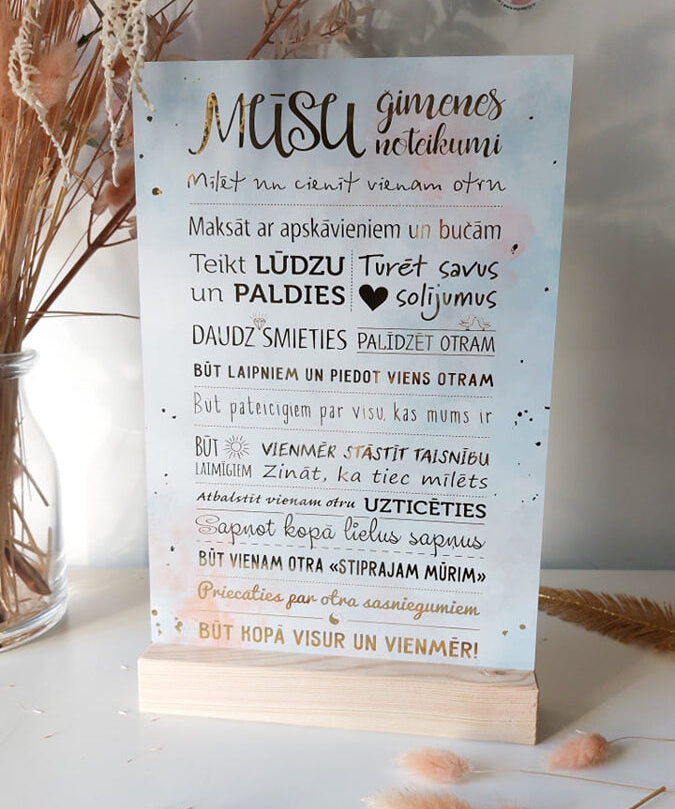 Mūsu ģimenes noteikumi
Mīlēt un cienīt vienam otru
Maksāt ar apskāvieniem un bučām
Teikt LŪDZU
un PALDIES
Turēt savus
solījumus
DAUDZ SMIETIES
PALĪDZĒT OTRAM
BŪT LAIPNIEM UN PIEDOT VIENS OTRAM
Būt pateicīgiem par visu, kas mums ir
BŪT
LAIMĪGIEM
VIENMĒR STĀSTĪT TAISNĪBU
Zināt, ka tiec mīlēts
Atbalstīt vienam otru UZTICĒTIES
Sapņot kopā lielus sapņus
BŪT VIENAM OTRA «STIPRAJAM MŪRIM»
Priecāties par otra sasniegumiem
BŪT KOPĀ VISUR UN VIENMĒR!